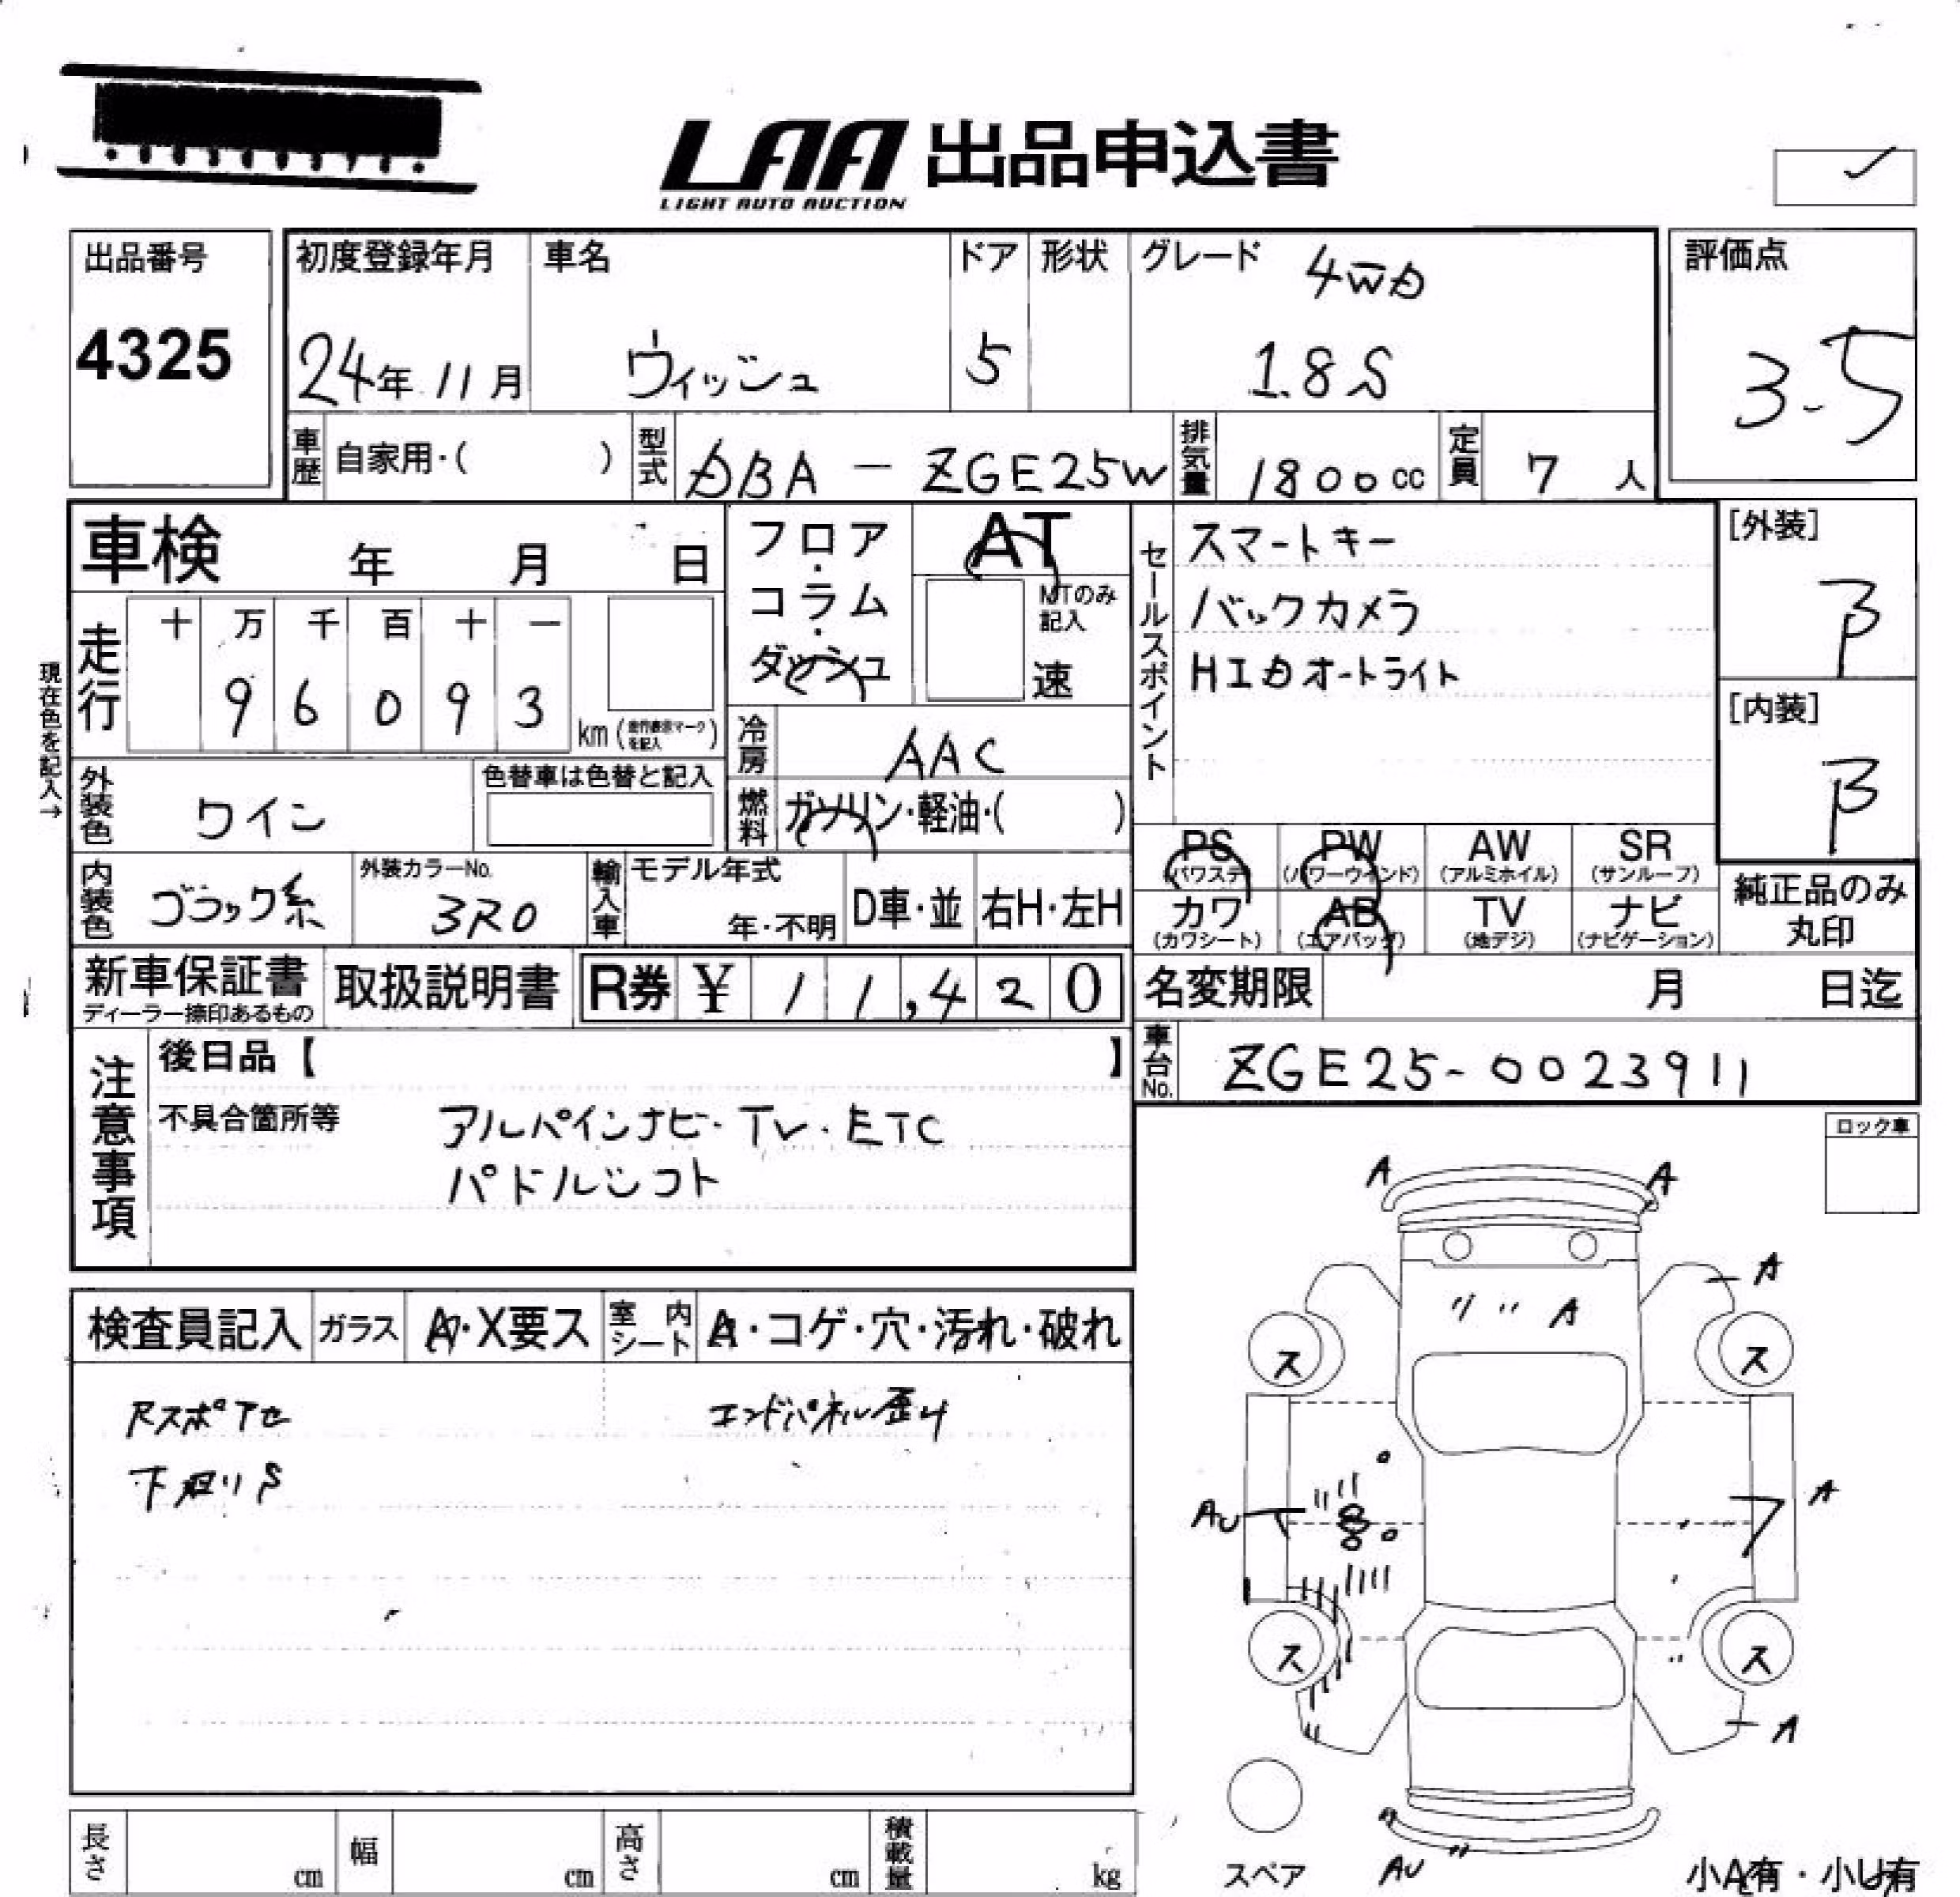 LAA 出品申込書
LIGHT AUTO AUCTION
出品番号
4325
初度登録年月
24年 11月
車名
ウィッシュ
ドア
5
形状
グレード
4WD
1.8S
評価点
3.5
車歴
自家用・( )
型式
DBA - ZGE25W
排気量
1800cc
定員
7 人
車検 年 月 日
フロア・コラム・ダッシュ
AT
MTのみ記入
速
セールスポイント
スマートキー
バックカメラ
HIDオートライト
[外装]
B
[内装]
B
現在色を記入→
走行
十 万 千 百 十 一
9 6 0 9 3
km (走行表示マークを記入)
冷房
AAC
外装色
ワイン
色替車は色替と記入
燃料
ガソリン・軽油・( )
PS (パワステ)
PW (パワーウインド)
AW (アルミホイル)
SR (サンルーフ)
カワ (カワシート)
AB (エアバッグ)
TV (地デジ)
ナビ (ナビゲーション)
純正品のみ丸印
内装色
ブラック系
外装カラーNo.
3R0
輸入車
モデル年式
年・不明
D車・並
右H・左H
新車保証書
ディーラー捺印あるもの
取扱説明書
R券 ¥ 1 1,4 2 0
名変期限 月 日迄
車台No.
ZGE25-0023911
注意事項
後日品【 】
不具合箇所等
アルパインナビ・TV・ETC
パドルシフト
ロック車
検査員記入
ガラス
A・X要ス
室内シート
A・コゲ・穴・汚れ・破れ
エンドパネル歪み
下廻りS
A A
A
A
ス ス
AU
A
ス ス
A
スペア
AU
小A有・小U有
長さ cm
幅 cm
高さ cm
積載量 kg